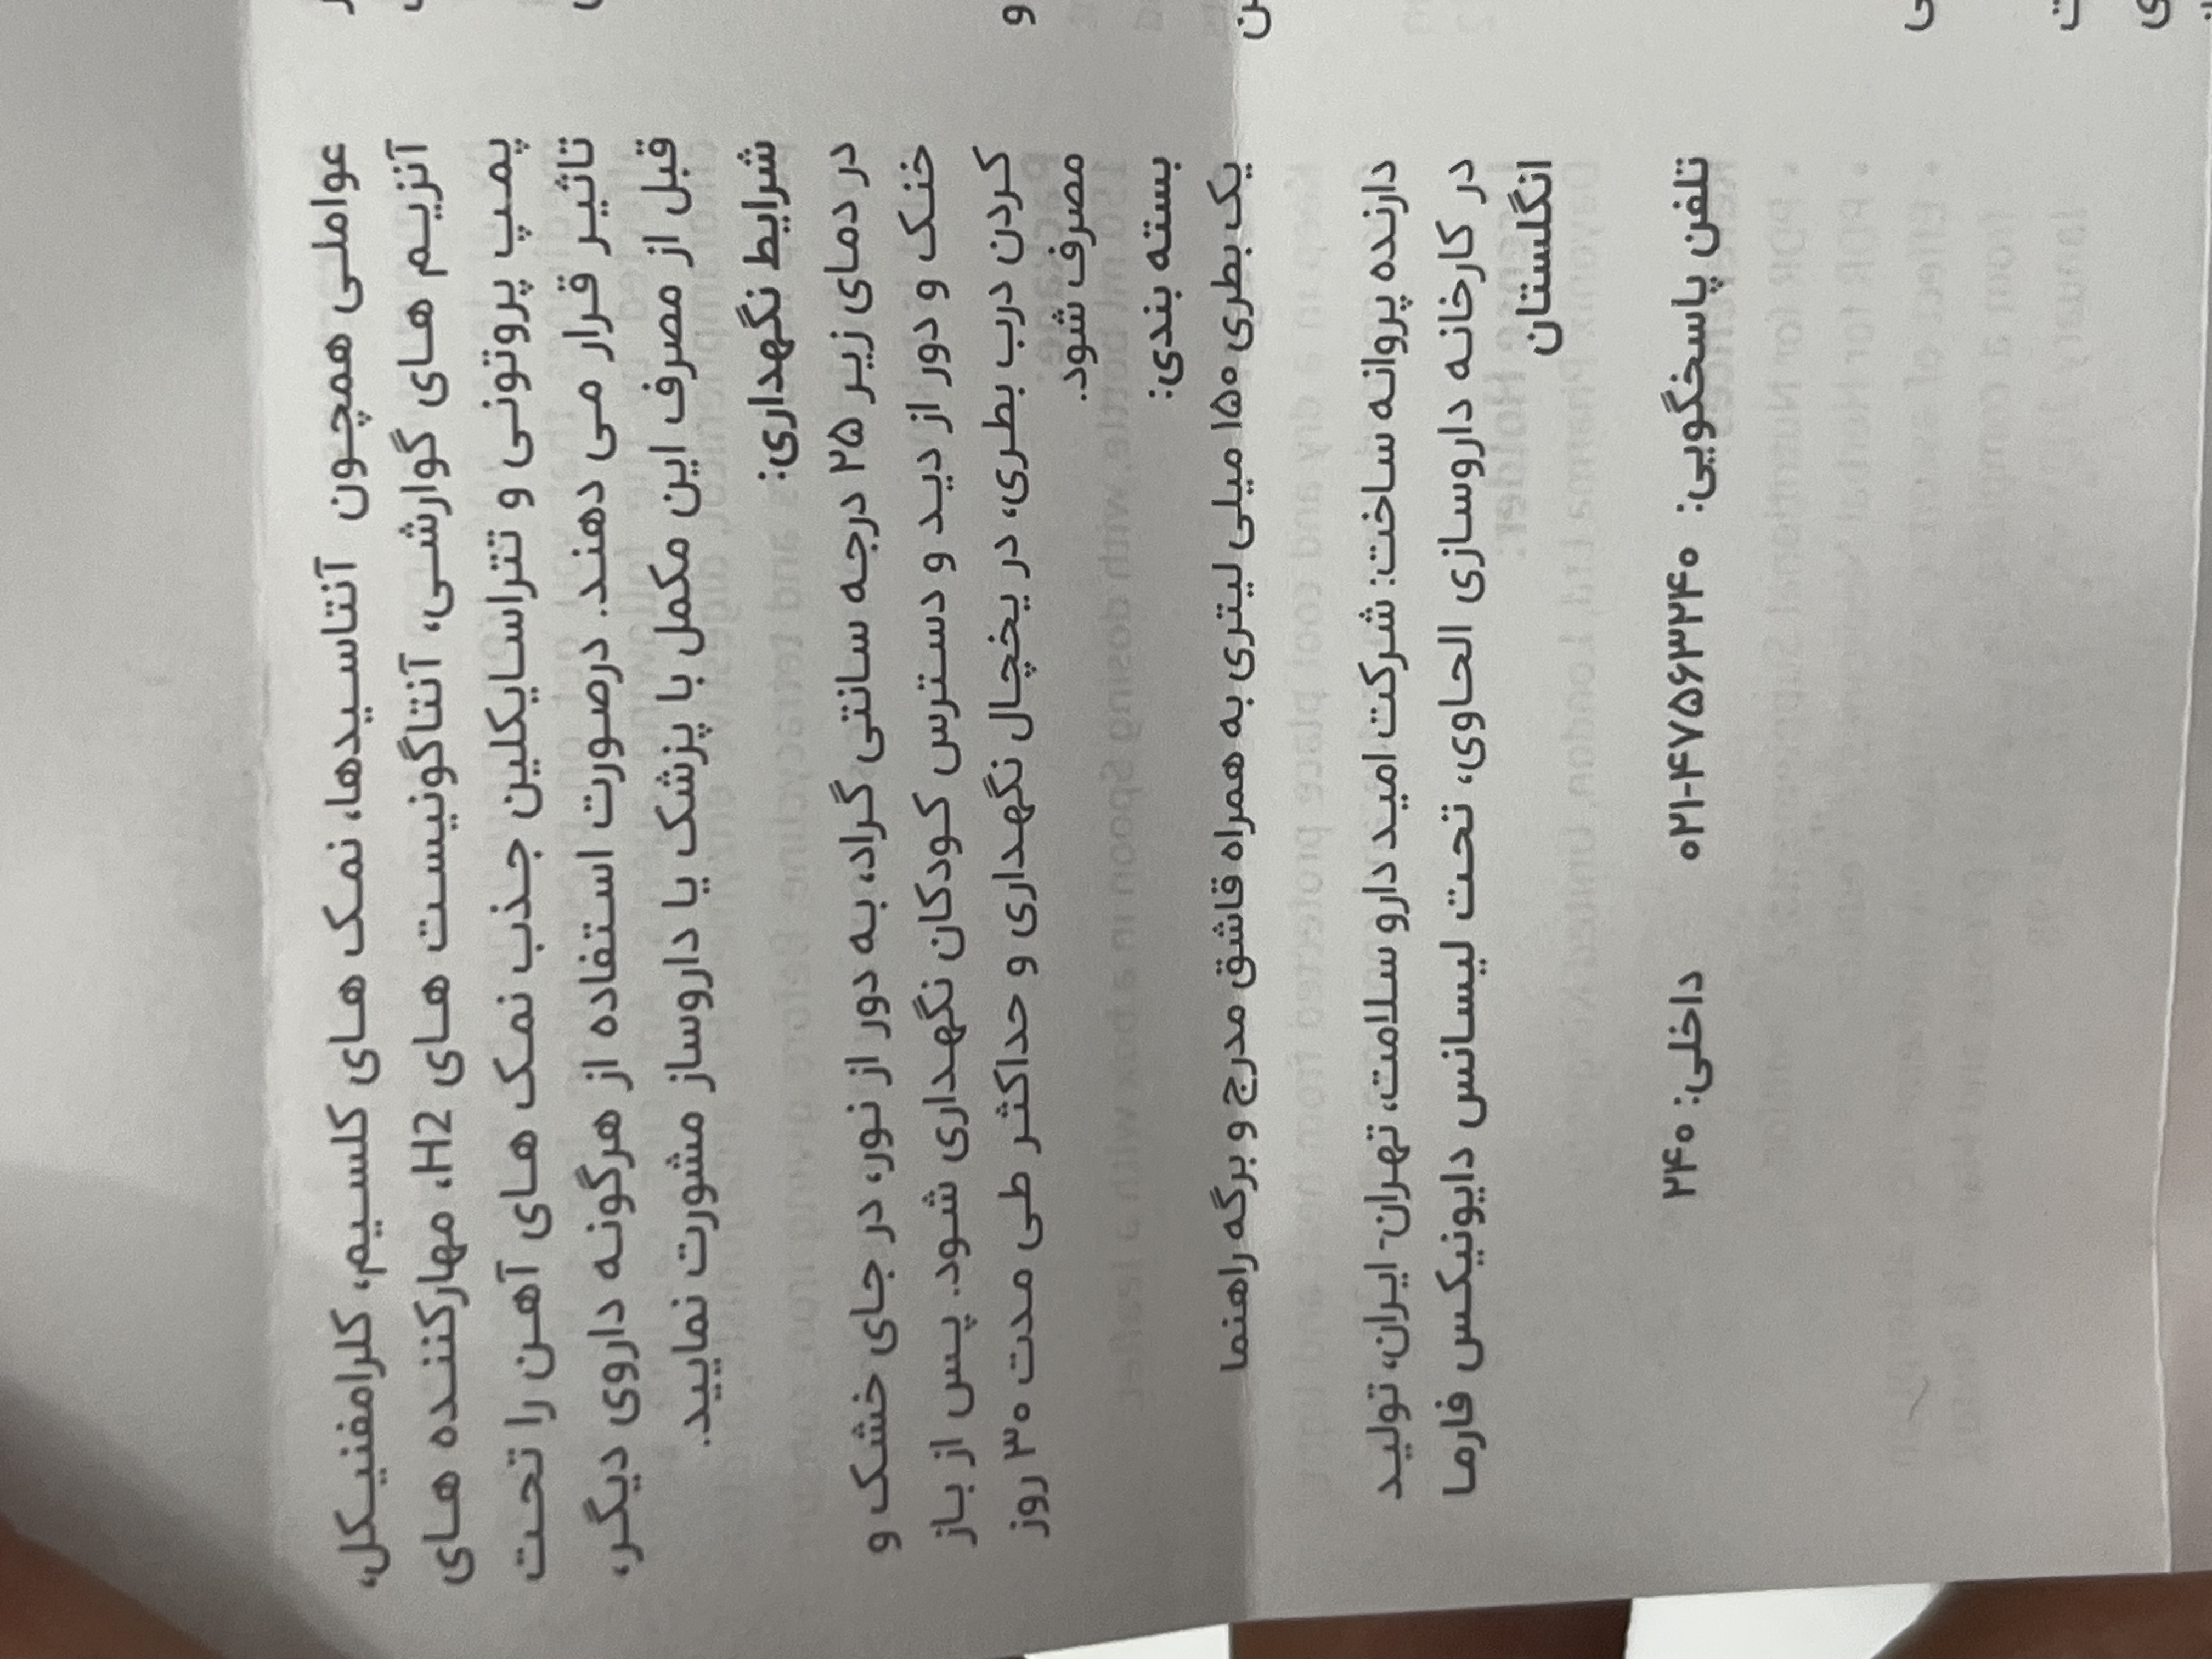 عواملی همچون آنتاسیدها، نمک های کلسیم، کلرامفنیکل،
آنزیم های گوارشی، آنتاگونیست های H2، مهارکننده های
پمپ پروتونی و تتراسایکلین جذب نمک های آهن را تحت
تاثیر قرار می دهند. درصورت استفاده از هرگونه داروی دیگر،
قبل از مصرف این مکمل با پزشک یا داروساز مشورت نمایید.
شرایط نگهداری:
در دمای زیر ۲۵ درجه سانتی گراد، به دور از نور، در جای خشک و
خنک و دور از دید و دسترس کودکان نگهداری شود. پس از باز
کردن درب بطری، در یخچال نگهداری و حداکثر طی مدت ۳۰ روز
مصرف شود.
بسته بندی:
یک بطری ۱۵۰ میلی لیتری به همراه قاشق مدرج و برگه راهنما
دارنده پروانه ساخت: شرکت امید دارو سلامت، تهران- ایران، تولید
در کارخانه داروسازی الحاوی، تحت لیسانس دایونیکس فارما
انگلستان
تلفن پاسخگویی: ۰۲۱-۴۷۵۶۳۲۴۰ داخلی: ۲۴۰